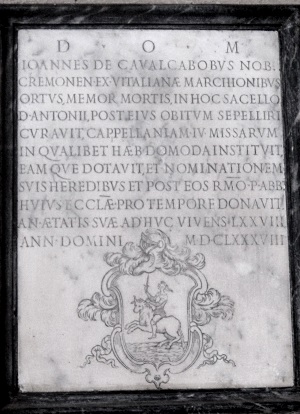 D O M
IOANNES DE CAVALCABOBUS NOB.
CREMONEN·EX·VITALIANÆ MARCHIONIBUS
ORTVS, MEMOR MORTIS, IN HOC SACELLO
D·ANTONII, POST EIVS OBITVM SEPELLIRI
CVRAVIT, CAPPELLANIAM IV MISSARVM
IN QVALIBET HÆBDOMODA INSTITVIT,
EAMQVE DOTAVIT, ET NOMINATIONEM
SVIS HEREDIBVS ET POST EOS RMO P·ABB
HVIVS ECCLÆ PRO TEMPORE DONAVIT
AN·ÆTATIS SVÆ ADHVC VIVENS·LXXVIII
ANN·DOMINI MDCLXXXVIII